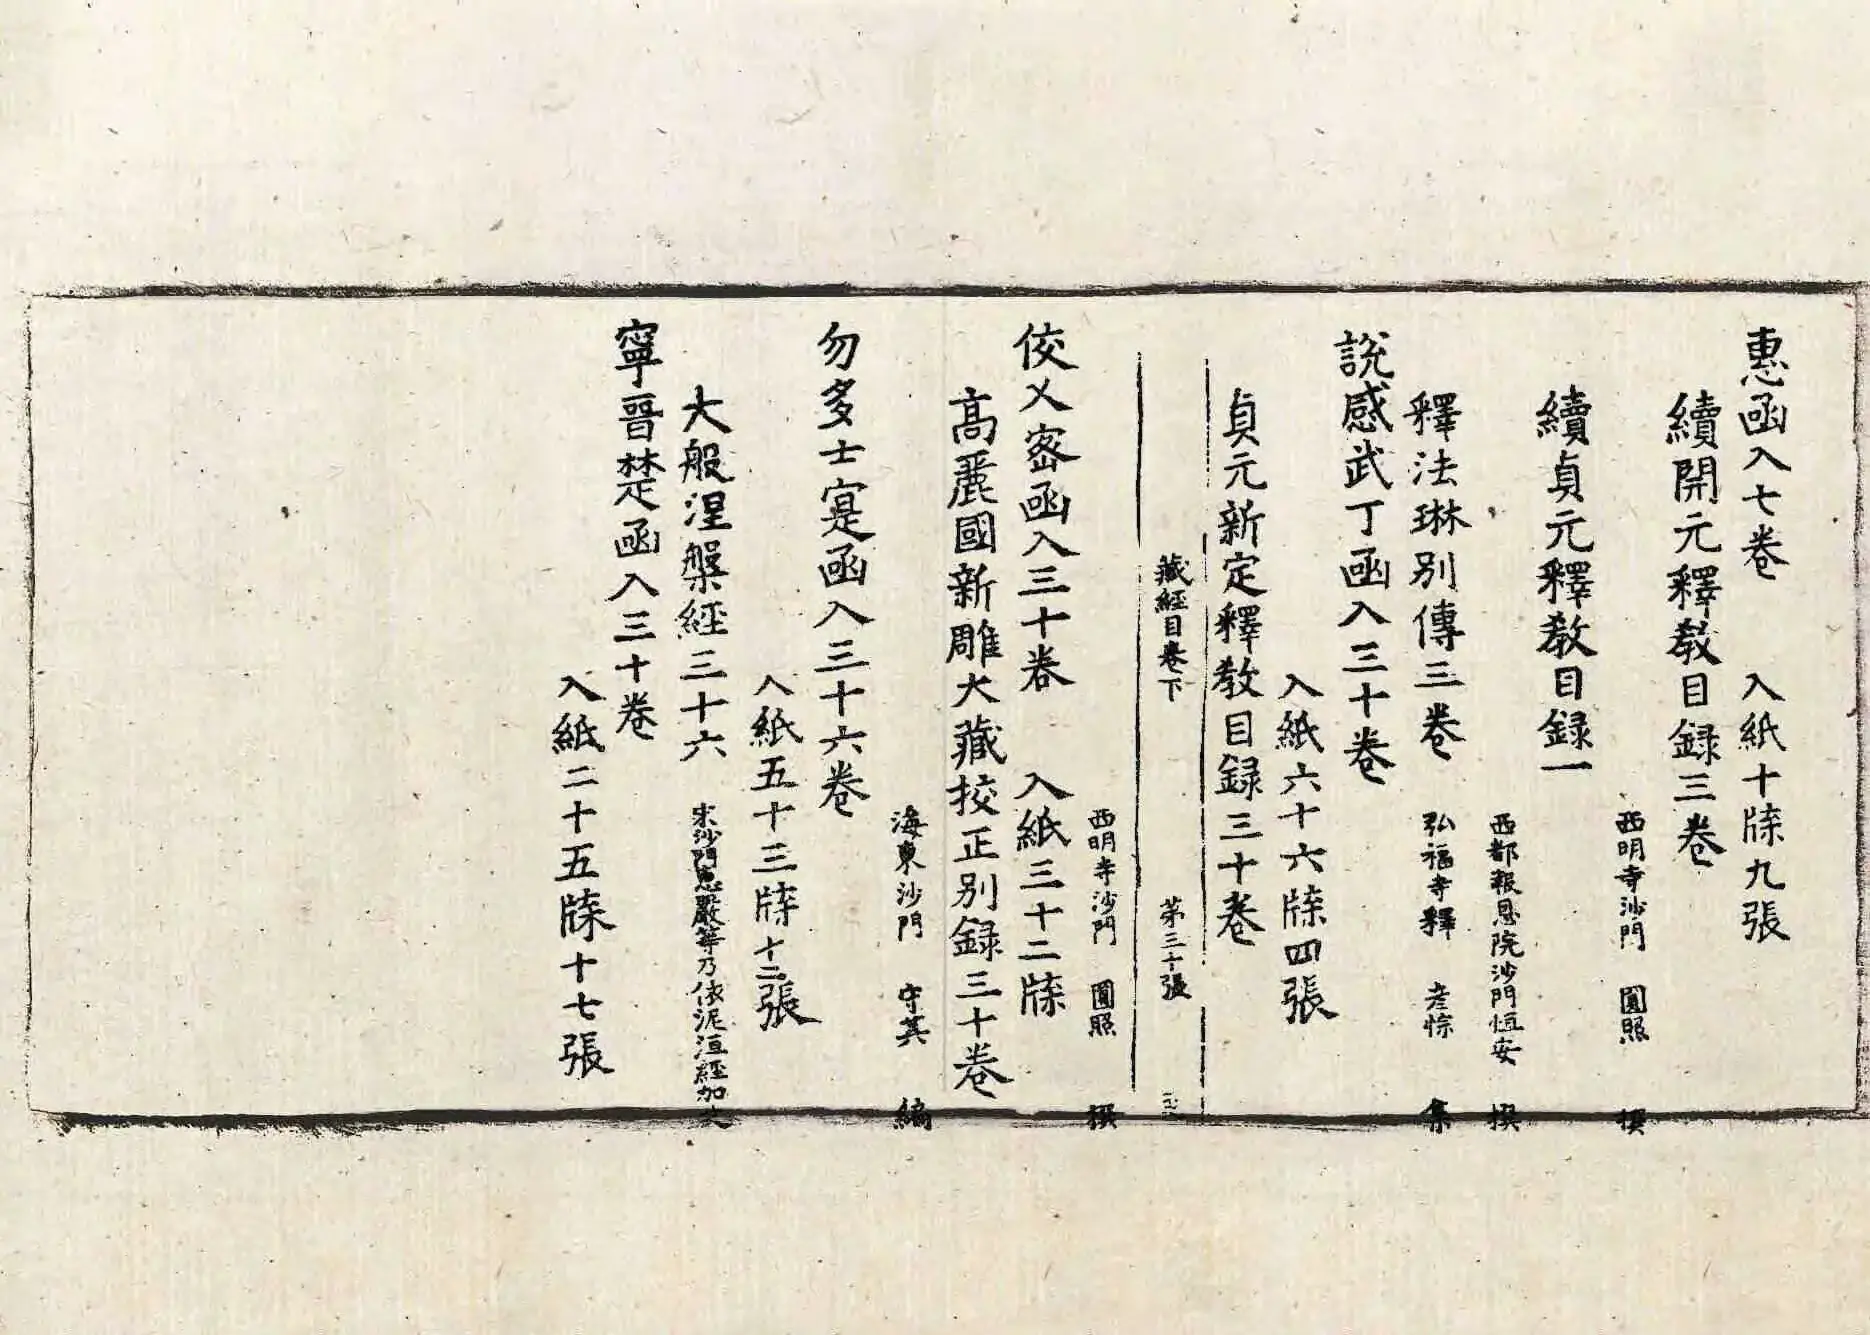 惠函入七卷　入紙十牒九張
續開元釋教目録三卷
西明寺沙門　圓照　撰
續貞元釋教目録一
西都報恩院沙門恒安　撰
釋法琳別傳三卷　弘福寺釋　彦悰　集
說感武丁函入三十卷
入紙六十六牒四張
貞元新定釋教目録三十卷
藏經目卷下　第三十張
西明寺沙門　圓照　撰
佼乂宻函入三十卷　入紙三十二牒
高麗國新雕大藏挍正別録三十卷
海東沙門　守其　編
勿多士寔函入三十六卷
入紙五十三牒十二張
大般涅槃經三十六　宋沙門惠嚴等乃依泥洹經加之
寧晉楚函入三十卷
入紙二十五牒十七張